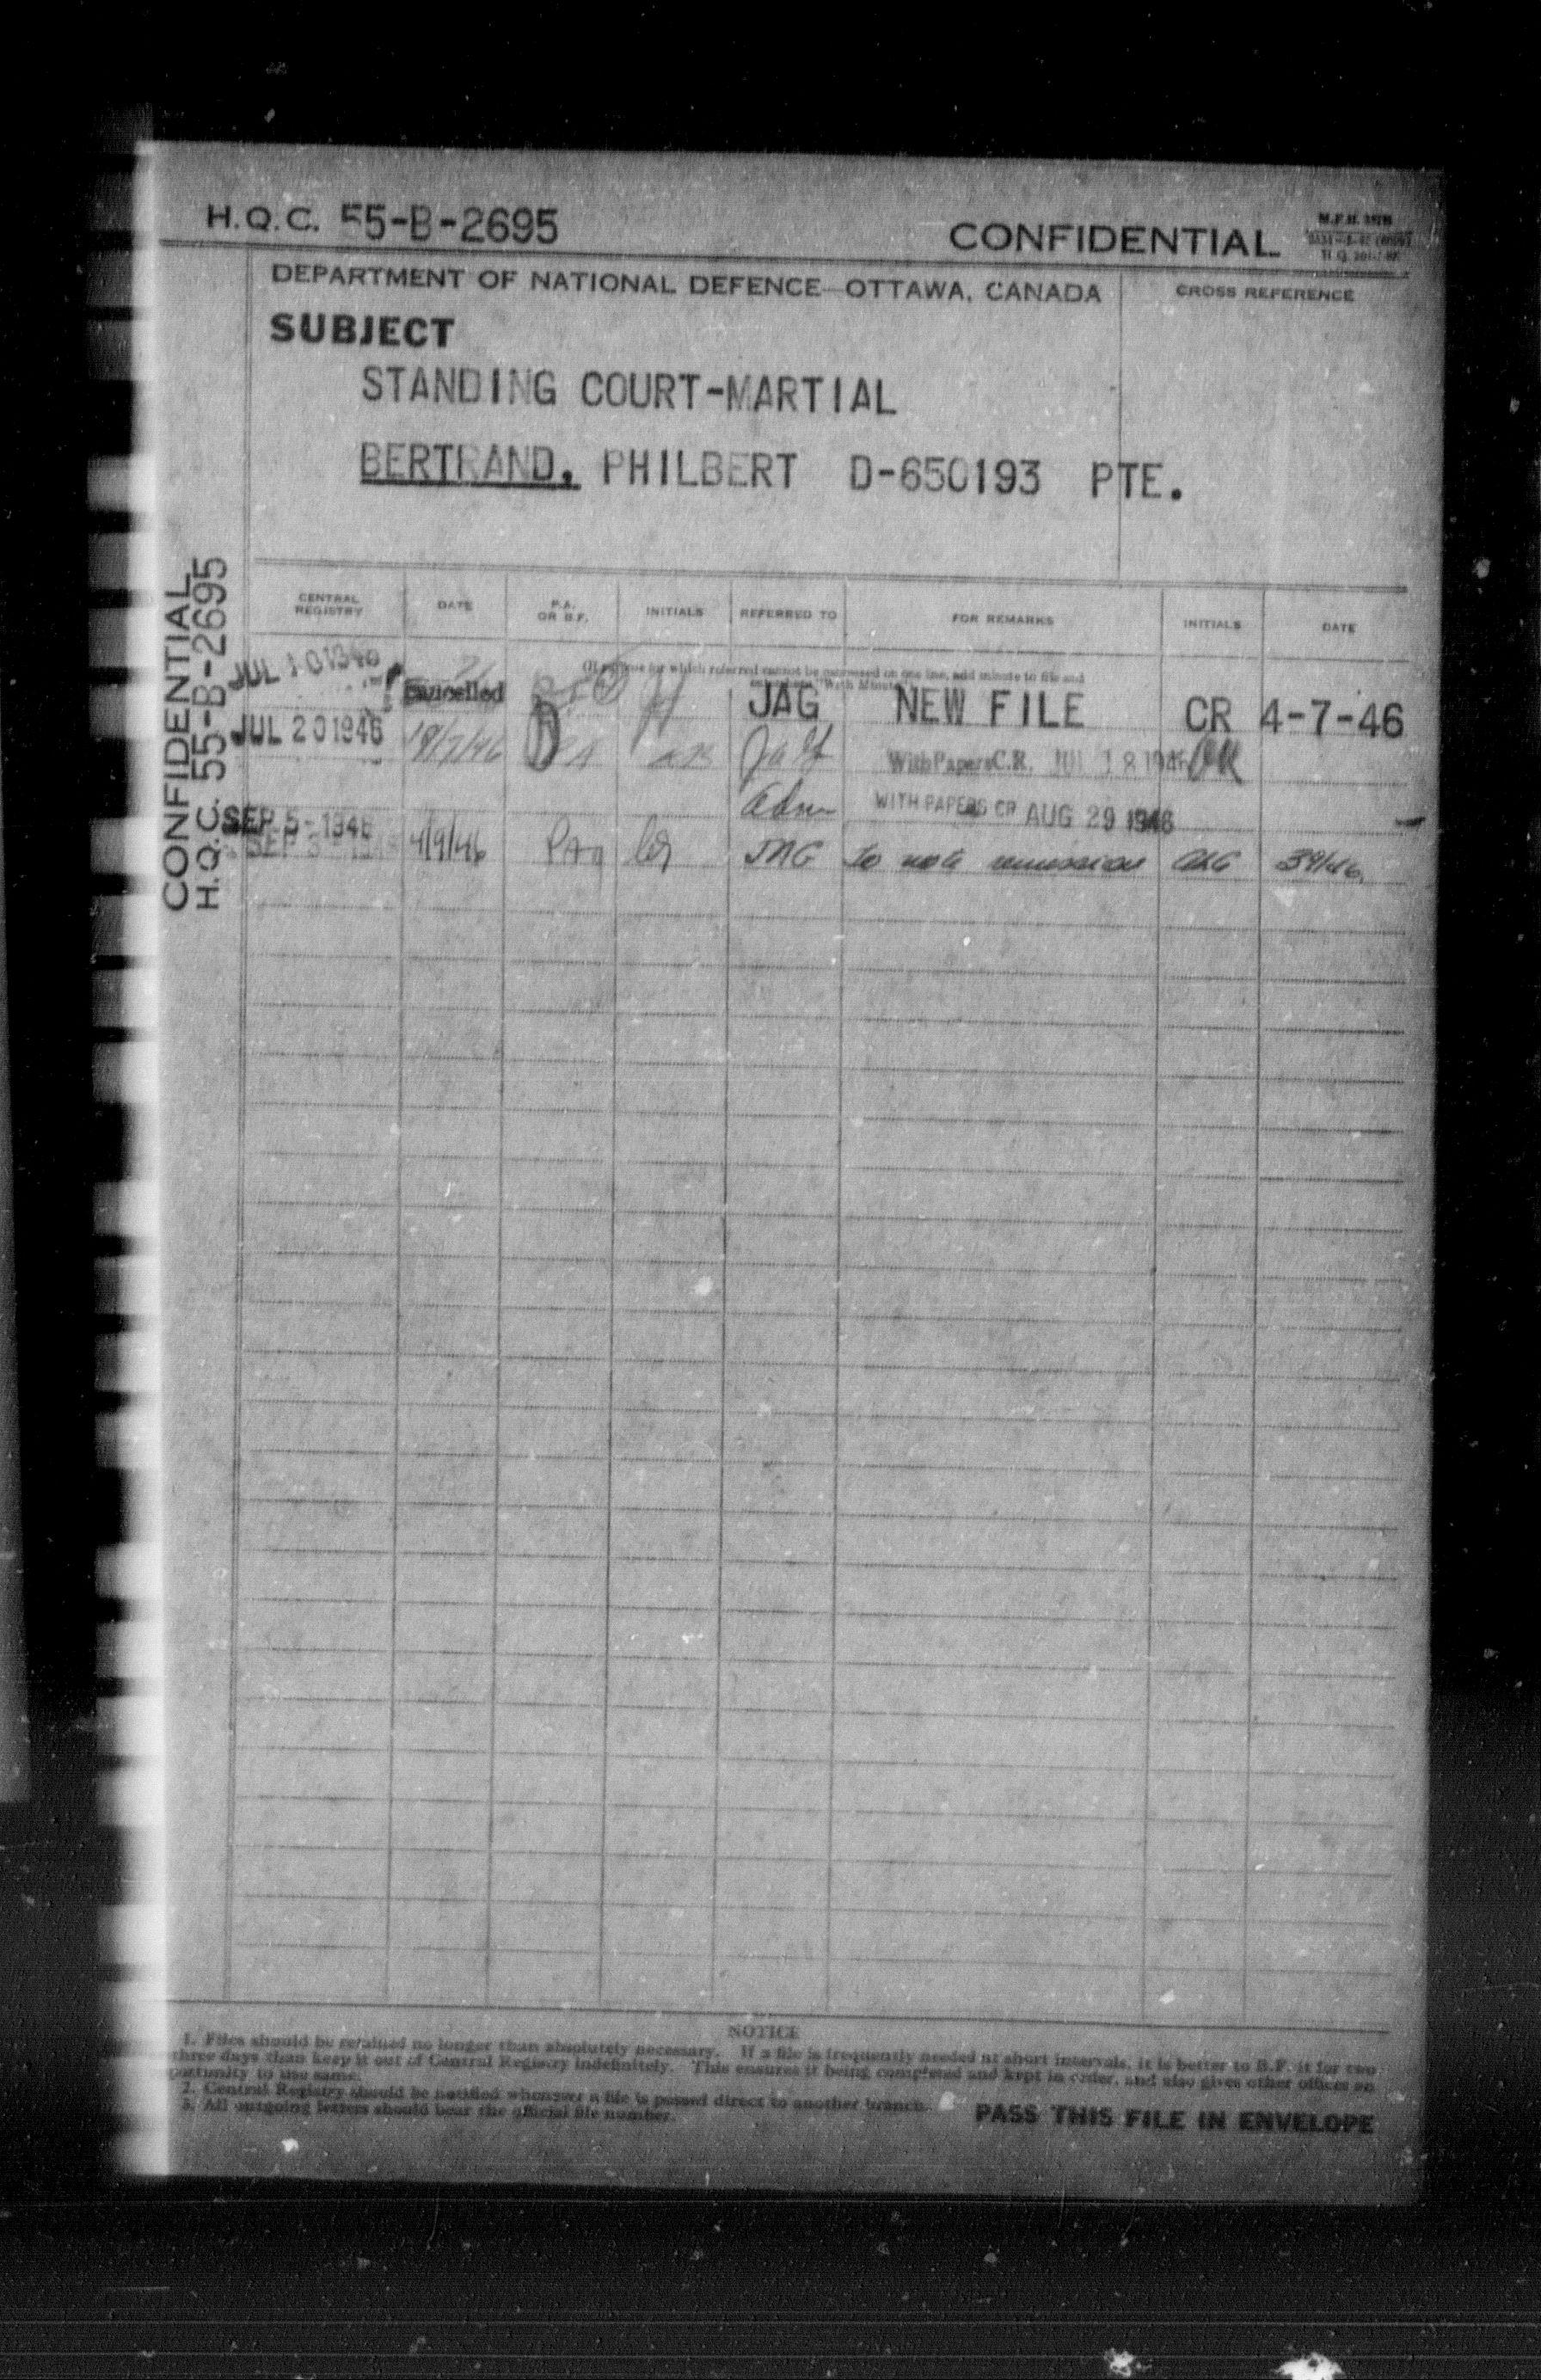 H.Q.C. 55-B-2695
CONFIDENTIAL
DEPARTMENT OF NATIONAL DEFENCE—OTTAWA, CANADA
CROSS REFERENCE
SUBJECT
STANDING COURT-MARTIAL
BERTRAND, PHILBERT D-650193 PTE.
CONFIDENTIAL
H.Q.C. 55-B-2695
CENTRAL REGISTRY DATE P.A. OR B.F. INITIALS REFERRED TO FOR REMARKS INITIALS DATE
JUL 10 1946 Cancelled JAG NEW FILE CR 4-7-46
JUL 20 1946 19/7/46 With Papers C.R. JUL 18 1946
Adm WITH PAPERS CR AUG 29 1946
SEP 5 - 1946 4/9/46 JAG to note remission
NOTICE
1. Files should be retained no longer than absolutely necessary. If a file is frequently needed at short intervals, it is better to B.F. it for two
three days than keep it out of Central Registry indefinitely. This ensures it being completed and kept in order, and also gives other offices an
opportunity to use same.
2. Central Registry should be notified whenever a file is passed direct to another branch.
3. All outgoing letters should bear the official file number.
PASS THIS FILE IN ENVELOPE